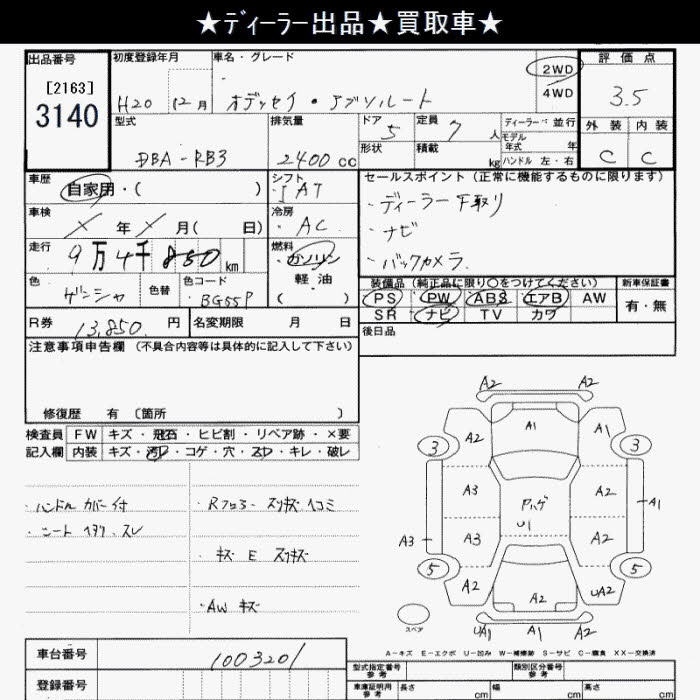 ★ディーラー出品★買取車★
出品番号 初度登録年月 車名・グレード 評価点
[2163] 2WD
3140 H20 12月 オデッセイ・アブソルート 4WD 3.5
型式 排気量 ドア 5 定員 7 人 ディーラー・並行 外装 内装
モデル年式 年
DBA-RB3 2400cc 形状 積載 kg ハンドル 左・右 C C
車歴 シフト セールスポイント(正常に機能するものに限ります)
自家用・( ) IAT ・ディーラー下取り
車検 冷房
年 月( 日) AC ・ナビ
走行 燃料
9万4千850km ガソリン ・バックカメラ
色 色替 色コード 軽油 装備品(純正品に限り○をつけてください) 新車保証書
ゲンシャ BG55P ( ) PS PW ABS エアB AW 有・無
SR ナビ TV カワ
R券 13,850円 名変期限 月 日 後日品
注意事項申告欄(不具合内容等は具体的に記入して下さい)
修復歴 有 〔箇所 〕
検査員 FW キズ・飛石・ヒビ割・リペア跡・×要
記入欄 内装 キズ・汚レ・コゲ・穴・スレ・キレ・破レ
・ハンドルカバー付 ・Rフロアー スリキズ ヘコミ
・シート ヘタリ、スレ
・キズ E スリキズ
・AW キズ
A2 A2
A2 A1 A1
3 3
A3 A2
アハゲ
A1
U1
A3 A3 A2
5 5
A2 A2 UA2
スペア UA1 A1 A2
A-キズ E-エクボ U-凹み W-補修跡 S-サビ C-腐食 XX-交換済
車台番号 1003201 型式指定番号 参考 類別区分番号 参考
登録番号 車庫証明用 参考 長さ cm 幅 cm 高さ cm